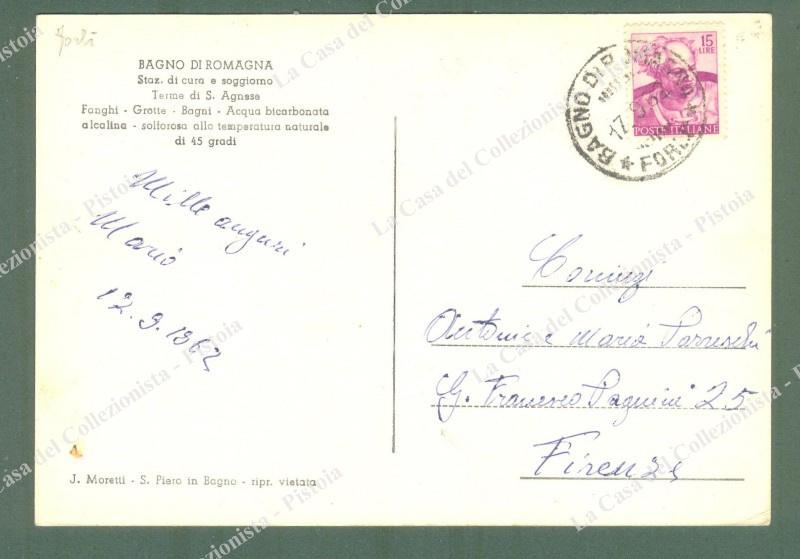 Forlì
BAGNO DI ROMAGNA
Staz. di cura e soggiorno
Terme di S. Agnese
Fanghi - Grotte - Bagni - Acqua bicarbonata
alcalina - solforosa alla temperatura naturale
di 45 gradi
Mille auguri
Mario
12.9.1962
J. Moretti - S. Piero in Bagno - ripr. vietata
15
LIRE
POSTE ITALIANE
BAGNO DI ROMAGNA
17.9
FORLI
Coniugi
Antonio e Maria Parreschi
G. Francesco Pagnini 25
Firenze
La Casa del Collezionista - Pistoia